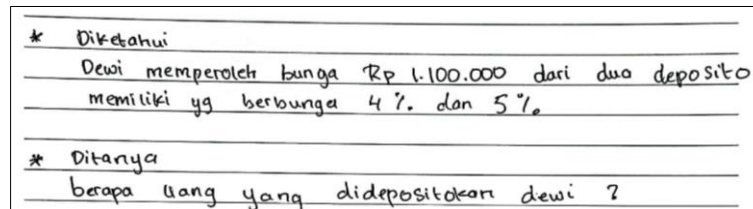 * Diketahui
Dewi memperoleh bunga Rp 1.100.000 dari dua deposito
memiliki yg berbunga 4 % dan 5 %
* Ditanya
berapa uang yang didepositokan dewi ?